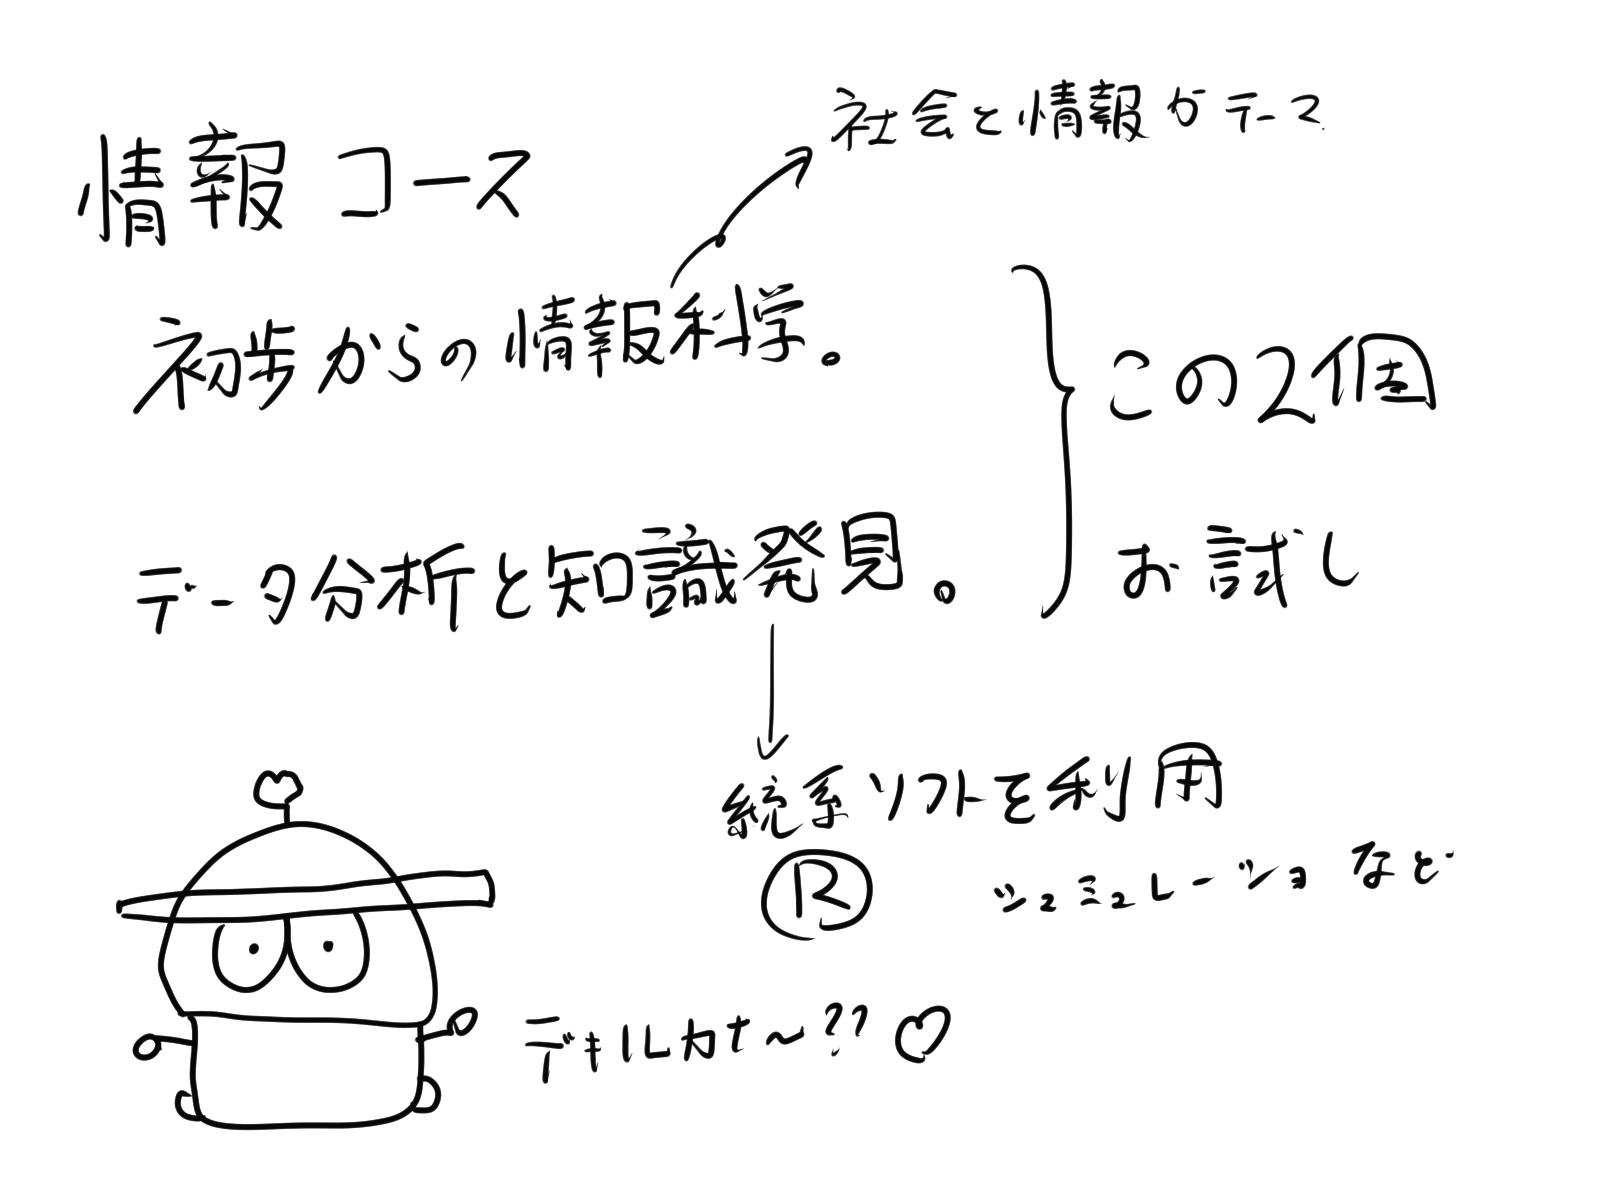 社会と情報がテーマ
情報コース
初歩からの情報科学。
この2個
お試し
データ分析と知識発見。
統系ソフトを利用
R
シュミュレーショなど
デキルカナ〜??♡